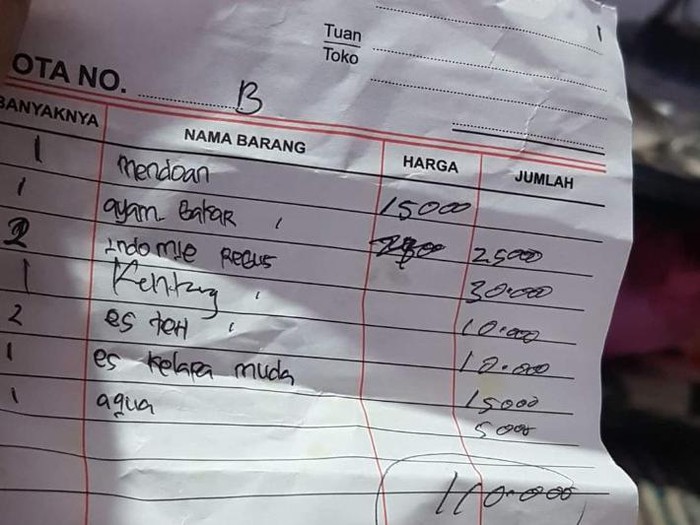 1
Tuan
Toko
OTA NO. B
BANYAKNYA NAMA BARANG HARGA JUMLAH
1 Mendoan 15000
1 ayam Bakar 25000
2 Indomie Rebus 30.000
1 Kentang 10.000
2 es teh 10.000
1 es kelapa muda 15000
1 aqua 5000
110.000